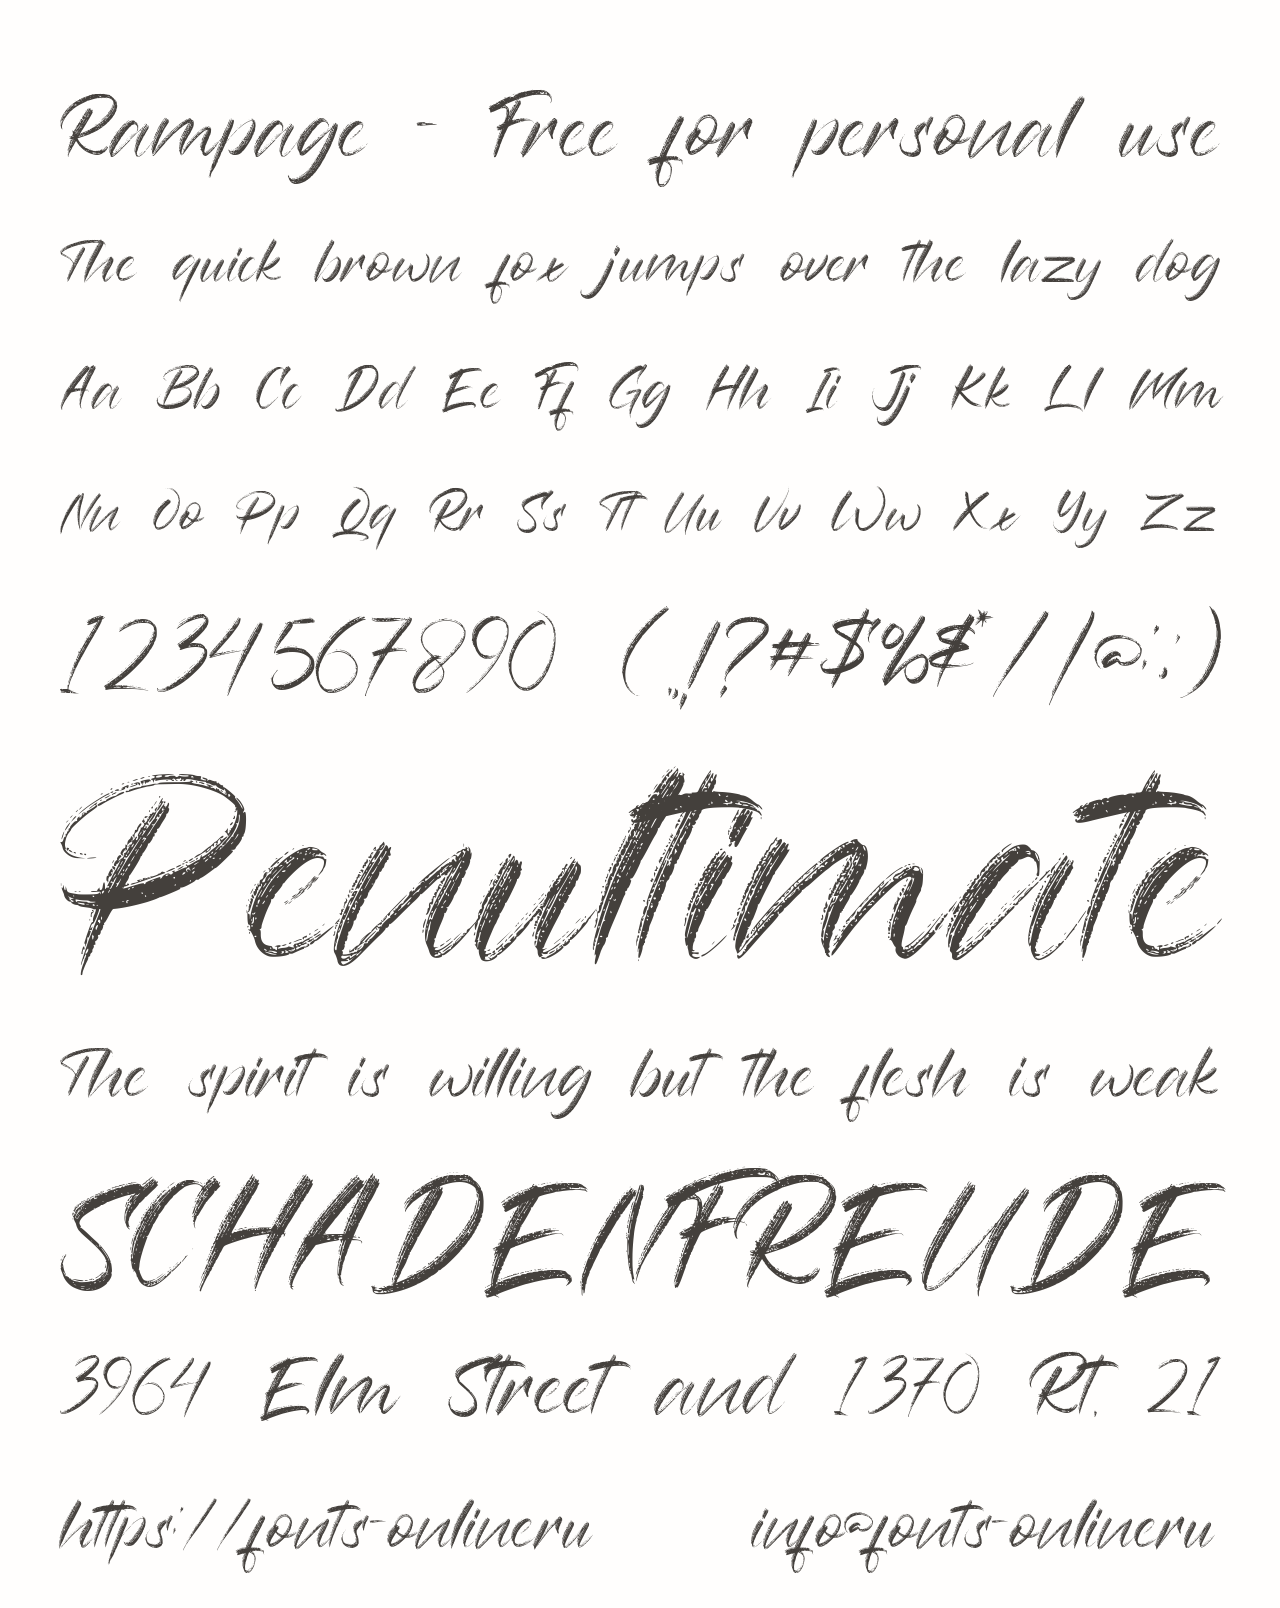 Rampage - Free for personal use
The quick brown fox jumps over the lazy dog
Aa Bb Cc Dd Ee Ff Gg Hh Ii Jj Kk Ll Mm
Nn Oo Pp Qq Rr Ss Tt Uu Vv Ww Xx Yy Zz
1234567890 (,,!?#$%&*/|@:;)
Penultimate
The spirit is willing but the flesh is weak
SCHADENFREUDE
3964 Elm Street and 1370 Rt. 21
https://fonts-onlineru info@fonts-onlineru